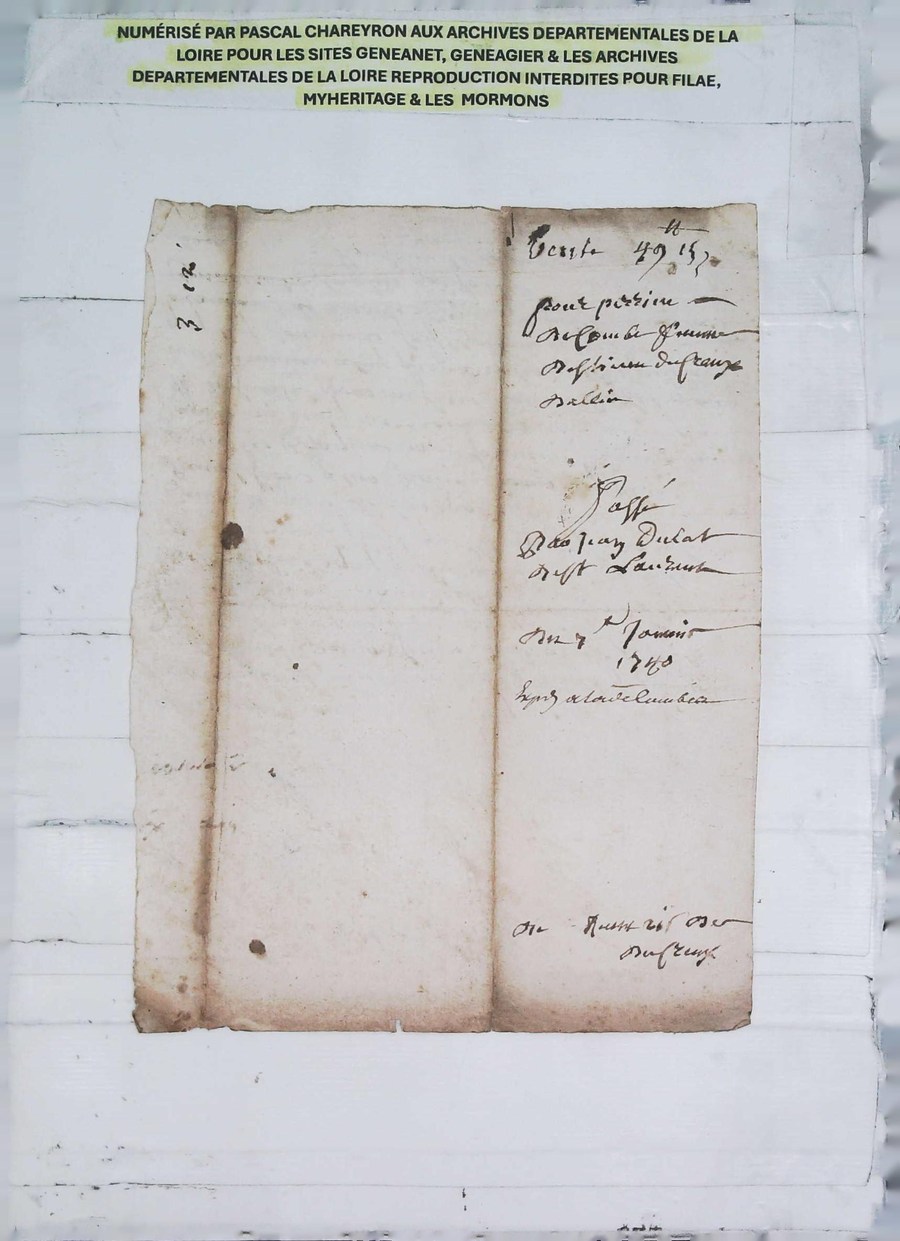 NUMÉRISÉ PAR PASCAL CHAREYRON AUX ARCHIVES DEPARTEMENTALES DE LA
LOIRE POUR LES SITES GENEANET, GENEAGIER & LES ARCHIVES
DEPARTEMENTALES DE LA LOIRE REPRODUCTION INTERDITES POUR FILAE,
MYHERITAGE & LES MORMONS
3 12
Vente 49 tt 15 s
pour perrine
Decombe femme
Destienne du Creux
Passé
Par Jean Dulat
De st Laurent
Du 7e Janvier
1740
De
Du Creux